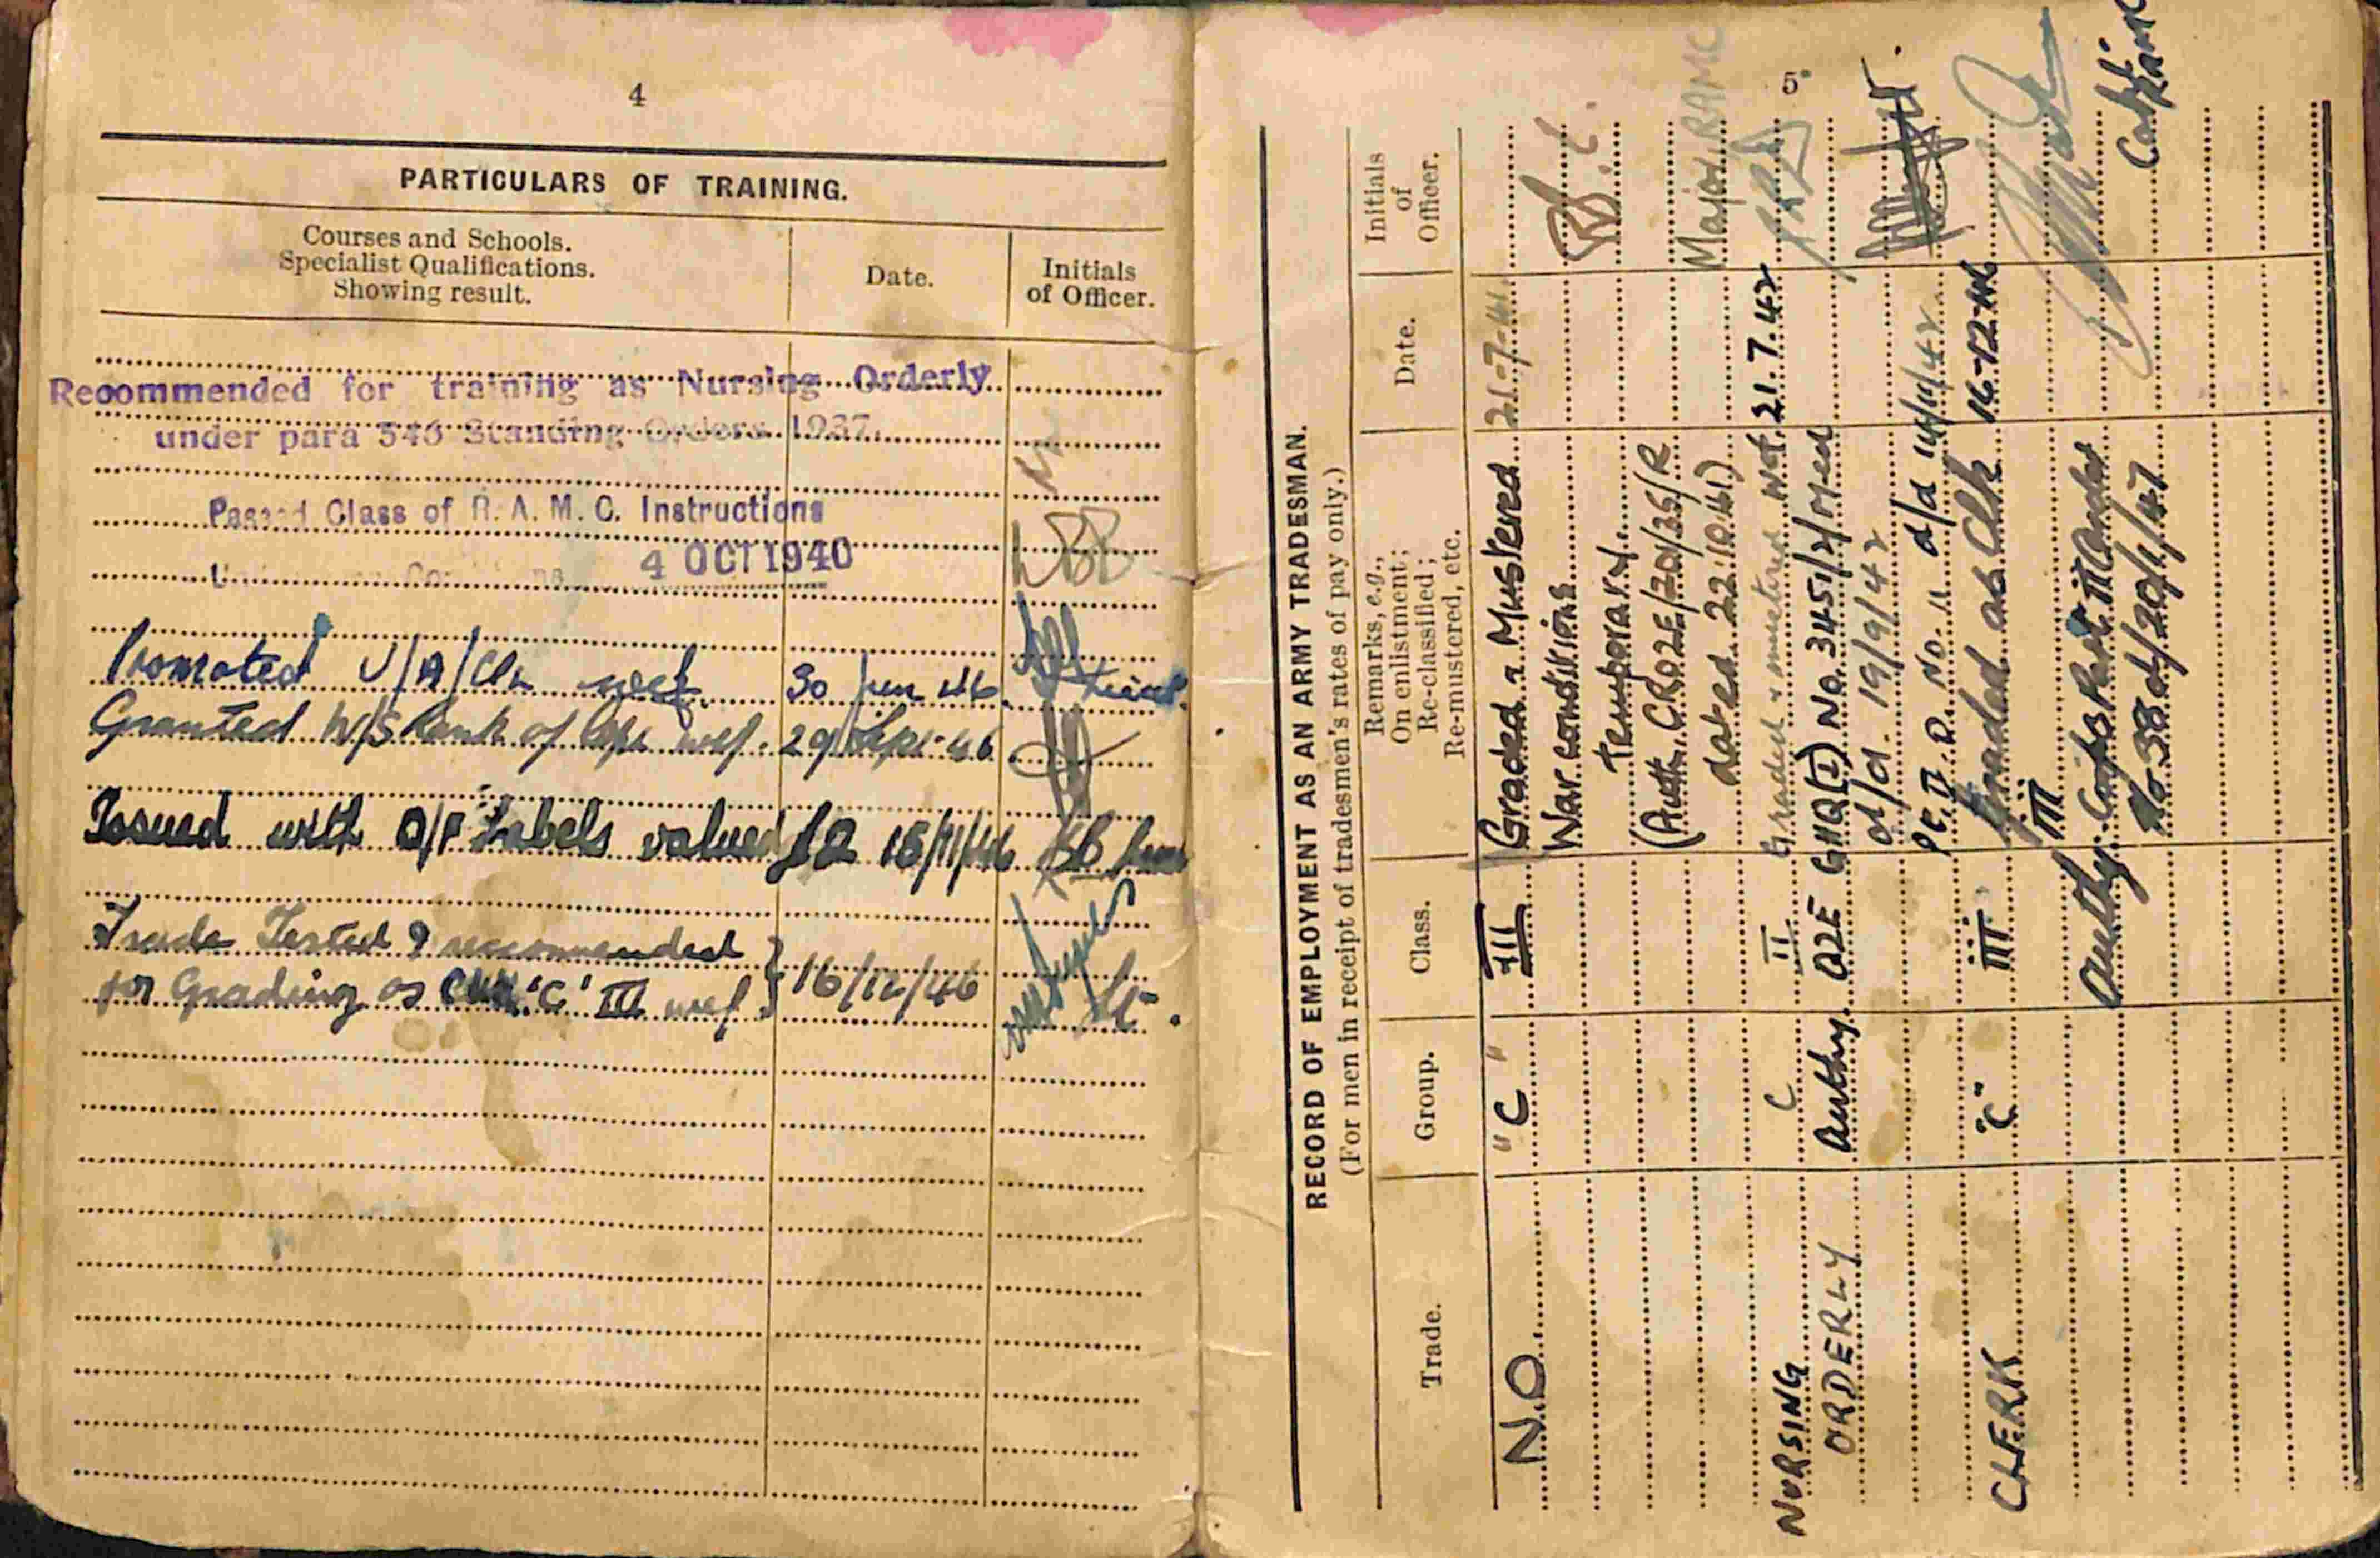 4
PARTICULARS OF TRAINING.
Courses and Schools.
Specialist Qualifications.
Showing result.
Date.
Initials
of Officer.
Recommended for training as Nursing Orderly
under para 546 Standing Orders 1937.
Passed Class of R. A. M. C. Instructions
4 OCT 1940
Promoted U/A/Cpl wef. 30 Jun 46
Granted W/S Rank of Cpl wef. 29 Sept 46
Issued with O/F Labels valued £2 15/11/46
Trade Tested & recommended
for Grading as Clk 'C' III wef 16/12/46
5
RECORD OF EMPLOYMENT AS AN ARMY TRADESMAN.
(For men in receipt of tradesmen's rates of pay only.)
Trade.
Group.
Class.
Remarks, e.g.,
On enlistment;
Re-classified;
Re-mustered, etc.
Date.
Initials
of
Officer.
N.O. "C" III Graded & Mustered 21-7-41
War conditions
Temporary.
(Auth. CRO2E/20/35/R
dated 22.10.41)
Major RAMC
NURSING C II Graded & mustered wef 21.7.42
ORDERLY Authy. O2E GHQ(2) No. 3451/2/Med
d/d. 19/9/42
No. 11 d/d
CLERK "C" III Graded as Clk 16-12-46
III
Authy. Part II Order
No 38 d/20/1/47
Capt.